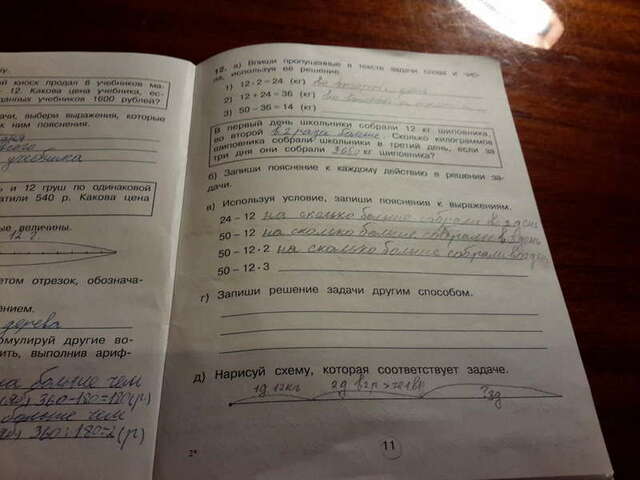 му.
й киоск продал 8 учебников ма-
12. Какова цена учебника, ес-
данных учебников 1600 рублей?
ачи, выбери выражения, которые
к ним пояснения.
учебника
ь и 12 груш по одинаковой
атили 540 р. Какова цена
ые величины.
12 2
етом отрезок, обознача-
ением.
дерева
рмулируй другие во-
ить, выполнив ариф-
на больше чем
360-180=180(р)
больше чем
360:180=2(р)
12. а) Впиши пропущенные в тексте задачи слова и чис-
ла, используя её решение.
1) 12 · 2 = 24 (кг) во
2) 12 + 24 = 36 (кг) во
3) 50 – 36 = 14 (кг)
В первый день школьники собрали 12 кг шиповника,
во второй в 2 раза больше. Сколько килограммов
шиповника собрали школьники в третий день, если за
три дня они собрали кг шиповника?
б) Запиши пояснение к каждому действию в решении за-
дачи.
в) Используя условие, запиши пояснения к выражениям.
24 – 12 на сколько больше собрали во 2 день
50 – 12 на сколько больше собрали в день
50 – 12 · 2 на сколько больше собрали
50 – 12 · 3
г) Запиши решение задачи другим способом.
д) Нарисуй схему, которая соответствует задаче.
1д 12кг 2д в 2р > ?3д
2*
11